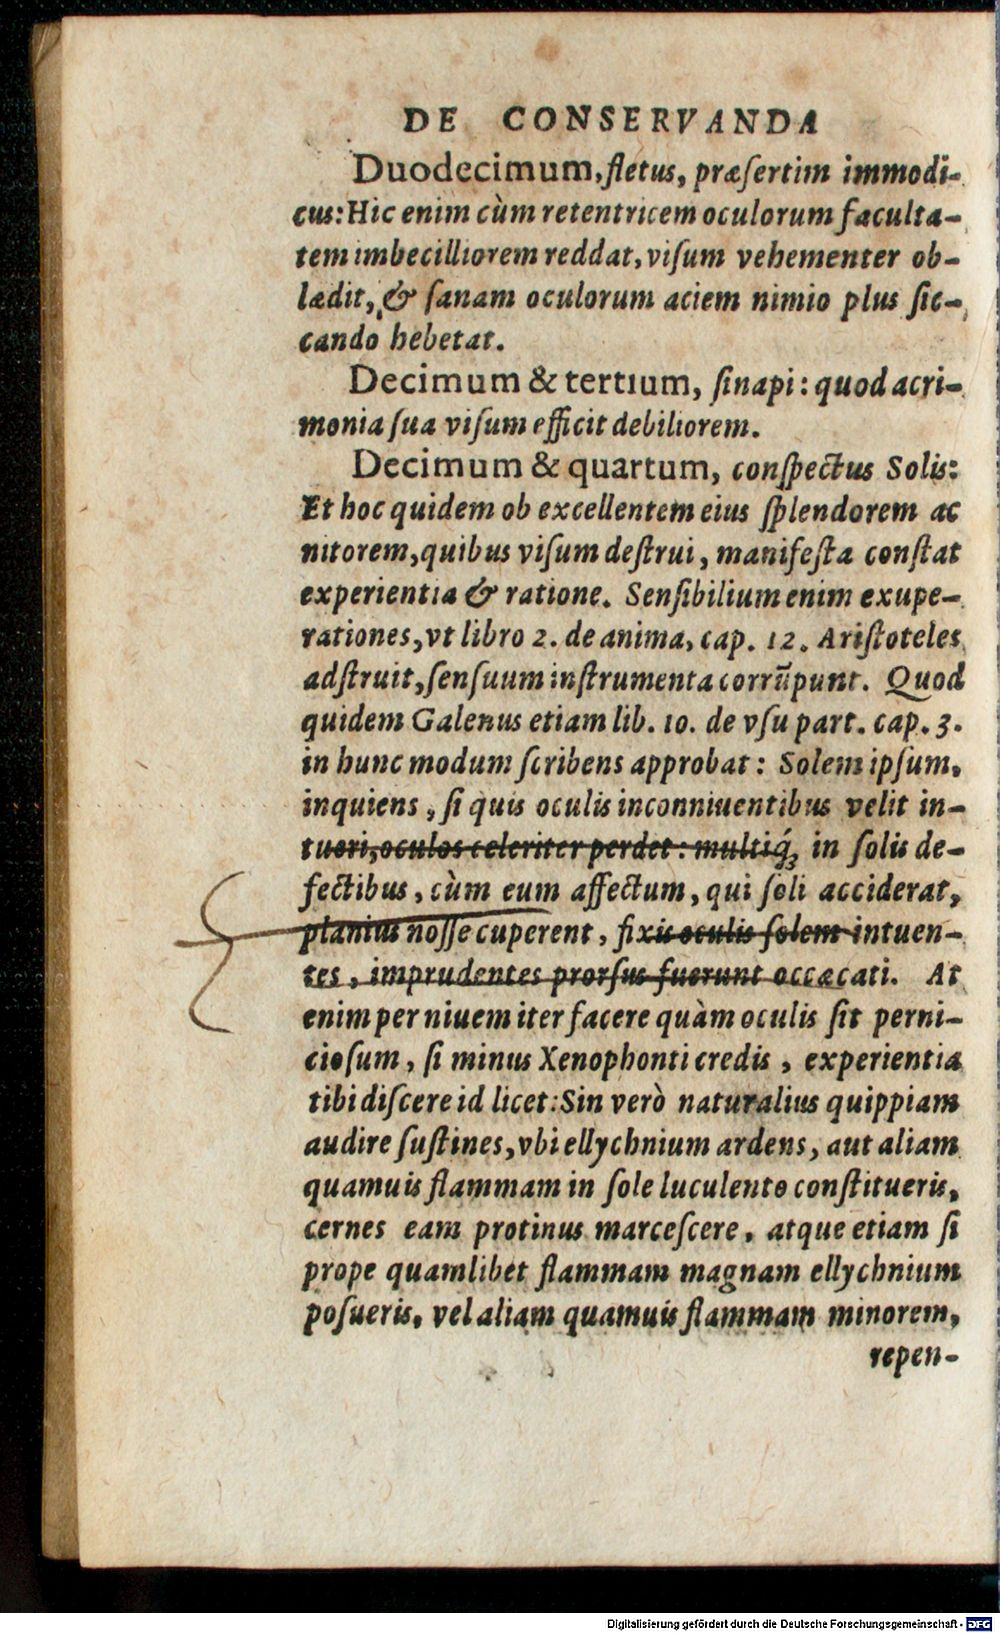 DE CONSERVANDA
Duodecimum, fletus, præſertim immodi-
cus: Hic enim cùm retentricem oculorum faculta-
tem imbecilliorem reddat, viſum vehementer ob-
lædit, & ſanam oculorum aciem nimio plus ſic-
cando hebetat.
Decimum & tertium, ſinapi: quod acri-
monia ſua viſum efficit debiliorem.
Decimum & quartum, conſpectus Solis:
Et hoc quidem ob excellentem eius ſplendorem ac
nitorem, quibus viſum deſtrui, manifeſta conſtat
experientia & ratione. Senſibilium enim exupe-
rationes, vt libro 2. de anima, cap. 12. Ariſtoteles
adſtruit, ſenſuum inſtrumenta corrūpunt. Quod
quidem Galenus etiam lib. 10. de vſu part. cap. 3.
in hunc modum ſcribens approbat: Solem ipſum,
inquiens, ſi quis oculis inconniuentibus velit in-
tueri, oculos celeriter perdet: multiq́ꝫ in ſolis de-
fectibus, cùm eum affectum, qui ſoli acciderat,
planius noſſe cuperent, fixis oculis ſolem intuen-
tes, imprudentes prorſus fuerunt occæcati. At
enim per niuem iter facere quàm oculis ſit perni-
cioſum, ſi minus Xenophonti credis, experientia
tibi diſcere id licet: Sin verò naturalius quippiam
audire ſuſtines, vbi ellychnium ardens, aut aliam
quamuis flammam in ſole luculento conſtitueris,
cernes eam protinus marceſcere, atque etiam ſi
prope quamlibet flammam magnam ellychnium
poſueris, vel aliam quamuis flammam minorem,
repen-
Digitalisierung gefördert durch die Deutsche Forschungsgemeinschaft - DFG